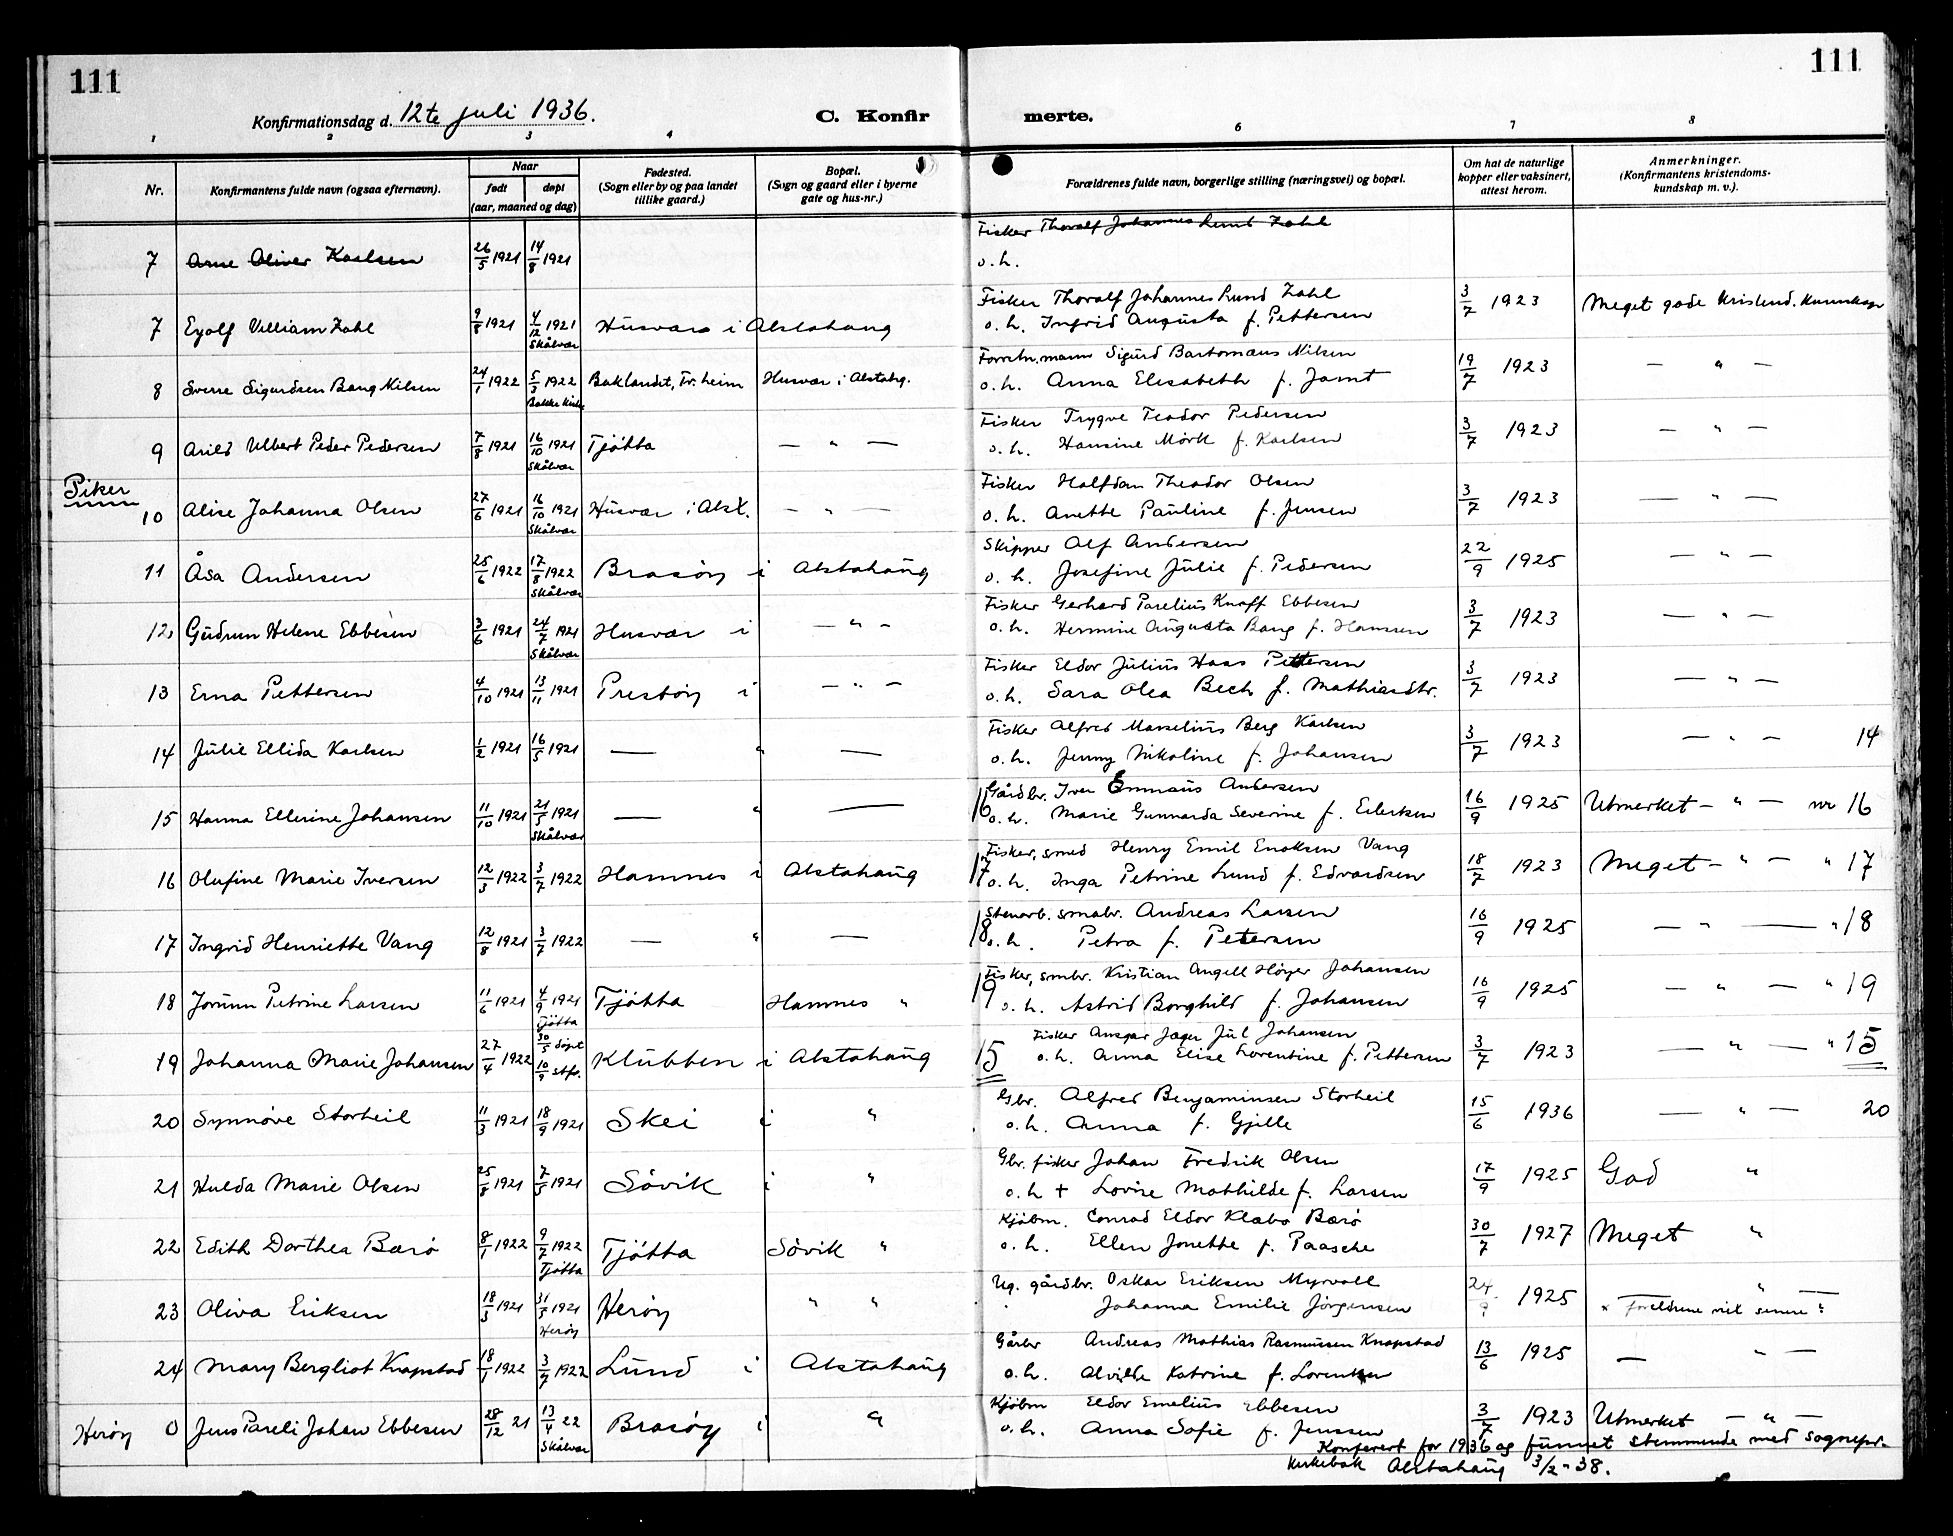 111
111
Konfirmationsdag d. 12te Juli 1936.
C. Konfir
merte.
1 2 3 4 6 7 8
Nr.
Konfirmantens fulde navn (ogsaa efternavn).
Naar
født
døpt
(aar, maaned og dag)
Fødested.
(Sogn eller by og paa landet
tillike gaard.)
Bopæl.
(Sogn og gaard eller i byerne
gate og hus-nr.)
Forældrenes fulde navn, borgerlige stilling (næringsvei) og bopæl.
Om hat de naturlige
kopper eller vaksinert,
attest herom.
Anmerkninger.
(Konfirmantens kristendoms-
kundskap m. v.).
7 Arne Oliver Karlsen 26/5 1921 14/8 1921 Fisker Thoralf Johannes Lund Zahl
o. h.
7 Eyolf William Zahl 9/8 1921 4/12 1921 Husvær i Alstahaug Fisker Thoralf Johannes Lund Zahl 3/7 1923 Meget gode kristend. kunnskap
Skålvær o. h. Ingrid Augusta f. Pettersen
8 Sverre Sigurdsen Bang Nilsen 24/1 1922 5/3 1922 Baklandet, Tr.heim Husvær i Alstahg. Forretn.mann Sigurd Bartomæus Nilsen 19/7 1923 — " —
Bakke kirke o. h. Anna Elisabeth f. Jamt
9 Arild Ulbert Peder Pedersen 7/8 1921 16/10 1921 Tjøtta — " — Fisker Trygve Teodor Pedersen 3/7 1923 — " —
Skålvær o. h. Hansine Mörk f. Karlsen
Piker
10 Alise Johanna Olsen 27/6 1921 16/10 1921 Husvær i Alst. — " — Fisker Halfdan Theodor Olsen 3/7 1923 — " —
Skålvær o. h. Anette Pauline f. Jensen
11 Åsa Andersen 25/6 1922 17/8 1922 Brasöy i Alstahaug Skipper Alf Andersen 22/9 1925 — " —
Skålvær o. h. Josefine Julie f. Pedersen
12 Gudrun Helene Ebbesen 3/6 1921 24/7 1921 Husvær i — " — Fisker Gerhard Parelius Knoff Ebbesen 3/7 1923 — " —
Skålvær o. h. Hermine Augusta Bang f. Hanssen
13 Erna Pettersen 4/10 1921 13/11 1921 Prestöy i — " — Fisker Eldor Julius Haas Pettersen 3/7 1923 — " —
o. h. Sara Olea Bech f. Mathiasdtr.
14 Julie Ellida Karlsen 1/2 1921 16/5 1921 — " — Fisker Alfred Marselius Berg Karlsen 3/7 1923 — " — 14
o. h. Jenny Nikoline f. Johansen
15 Hanna Ellerine Johansen 11/10 1921 21/5 1921 — " — 16 Gårdbr. Iver Emmaus Andersen 16/9 1925 Utmerket — " — nr 16
Skålvær o. h. Marie Gunnarda Severine f. Eilertsen
16 Olufine Marie Iversen 12/3 1922 3/7 1922 Hamnes i Alstahaug 17 Fisker, smed Henry Emil Enoksen Vang 18/7 1923 Meget — " — " 17
o. h. Inga Petrine Lund f. Edvardsen
17 Ingrid Henriette Vang 12/8 1921 3/7 1922 — " — 18 Stenarb. småbr. Andreas Larsen 16/9 1925 — " — " 18
o. h. Petra f. Petersen
18 Jorunn Petrine Larsen 11/6 1921 4/9 1921 Tjøtta Hamnes " 19 Fisker, smbr. Kristian Angell Höyer Johansen 16/9 1925 — " — " 19
Tjøtta o. h. Astrid Borghild f. Johansen
19 Johanna Marie Johansen 27/4 1922 30/5 döpt 10/9 stf. Klubben i Alstahaug 15 Fisker Ansgar Jæger Jul Johansen 3/7 1923 — " — " 15
o. h. Anna Elise Lorentine f. Pettersen
20 Synnøve Storheil 11/3 1921 18/9 1921 Skei i " Gbr. Alfred Benjaminsen Storheil 15/6 1936 — " — 20
o. h. Anna f. Gjille
21 Hulda Marie Olsen 25/8 1921 7/5 1921 Sövik i " Gbr. fisker Johan Fredrik Olsen 17/9 1925 God "
o. h + Lovise Mathilde f. Larsen
22 Edith Dorthea Bærø 8/1 1922 9/7 1922 Tjøtta Sövik " Kjöbm. Conrad Eldor Klæbo Bærö 30/7 1927 Meget "
Tjøtta o. h. Ellen Jonette f. Paasche
23 Oliva Eriksen 18/3 1921 31/5 1921 Herøy " " Ug. gårdbr. Oskar Eriksen Myrvoll 24/9 1925 — " —
Herøy Johanna Emilie Jørgensen × Foreldrene viet senere
24 Mary Bergliot Knapstad 18/1 1922 3/7 1922 Lund i Alstahaug Gårbr Andreas Mathias Rasmussen Knapstad 13/6 1925 — " —
o. h. Alvilde Katrine f. Lorentsen
Herøy 0 Jens Pareli Johan Ebbesen 28/12 21 13/4 22 Brasöy i " Kjöbm Eldor Emelius Ebbesen 3/7 1923 Utmerket — " —
Skålvær o. h. Anna Sofie f. Jenssen
Konferert for 1936 og funnet stemmende med sognepr.
kirkebok Alstahaug 3/2 - 38.